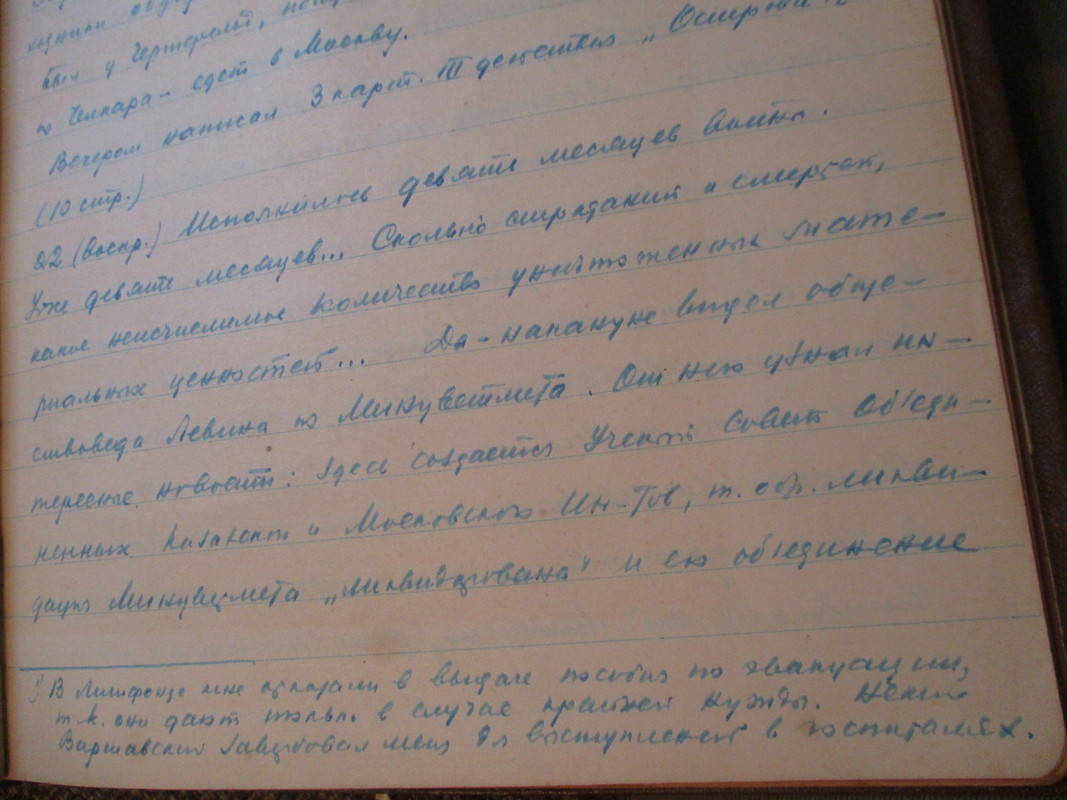 был у
из Чкпара - едет в Москву.
Вечером написал 3 карт. III действия „Острова
(10 стр.)
22 (воскр.) Исполнилось девять месяцев войны.
Уже девять месяцев... Сколько страданий и смертей,
какое неисчислимое количество уничтоженных мате-
риальных ценностей... Да - накануне видел обще-
ствоведа Левина из Минцветмета. От него узнал ин-
тересные новости: здесь создается Ученый Совет Объеди-
ненных Казахского и Московского Ин-тов, т. обр. ликви-
дация Минцветмета „ликвидирована" и его объединение
¹) В Литфонде мне отказали в выдаче пособия по эвакуации,
т.к. они дают только в случае крайней нужды. Некий
Варшавский завербовал меня для выступлений в госпиталях.